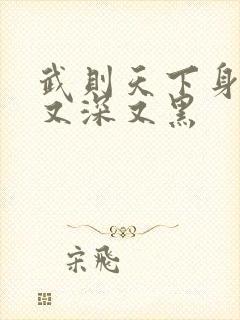 武则天下身
又深又黑
宋飛